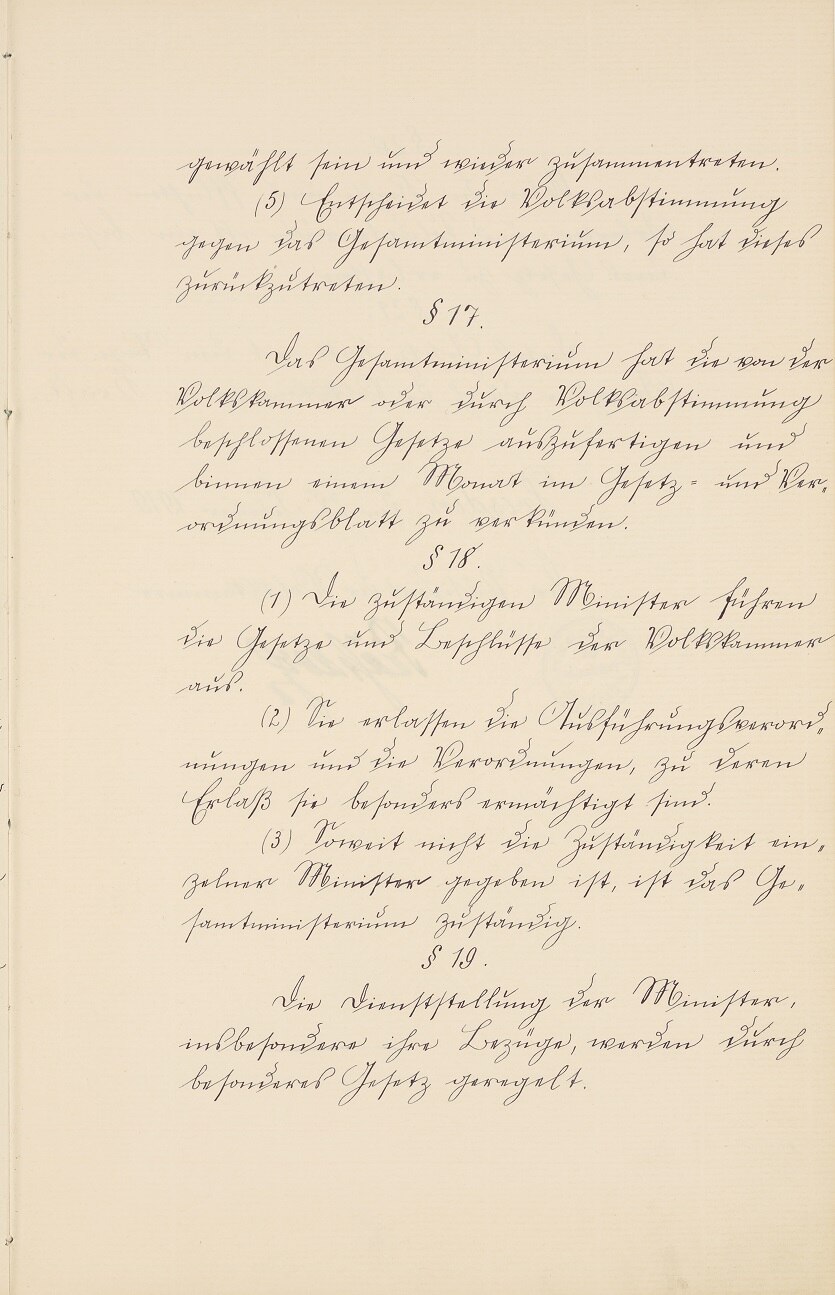 gewählt sein und wieder zusammentreten.
(5) Entscheidet die Volksabstimmung
gegen das Gesamtministerium, so hat dieses
zurückzutreten.
§ 17.
Das Gesamtministerium hat die von der
Volkskammer oder durch Volksabstimmung
beschlossenen Gesetze auszufertigen und
binnen einem Monat im Gesetz- und Ver-
ordnungsblatt zu verkünden.
§ 18.
(1) Die zuständigen Minister führen
die Gesetze und Beschlüsse der Volkskammer
aus.
(2) Sie erlassen die Ausführungsverord-
nungen und die Verordnungen, zu deren
Erlaß sie besonders ermächtigt sind.
(3) Soweit nicht die Zuständigkeit ein-
zelner Minister gegeben ist, ist das Ge-
samtministerium zuständig.
§ 19.
Die Dienststellung der Minister,
insbesondere ihre Bezüge, werden durch
besonderes Gesetz geregelt.